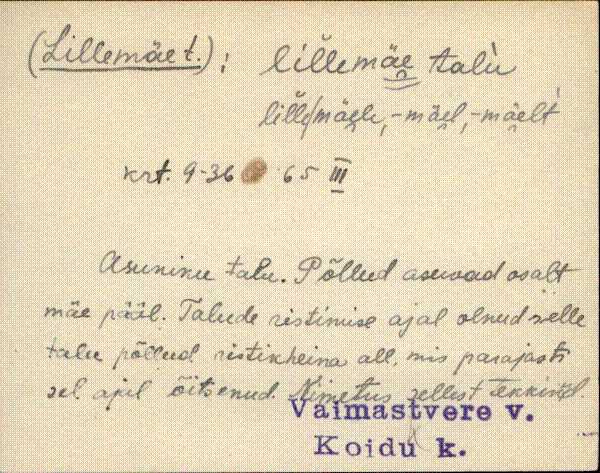 (Lillemäe t.): lillemäe talu
lille/mäele, -mäel, -mäelt
krt. 9-36 65 III
Asuniku talu. Põllud asuvad osalt
mäe pääl. Talude ristimise ajal olnud selle
talu põllud ristikheina all, mis parajasti
sel ajal õitsenud. Nimetus sellest tekkinud.
Vaimastvere v.
Koidu k.